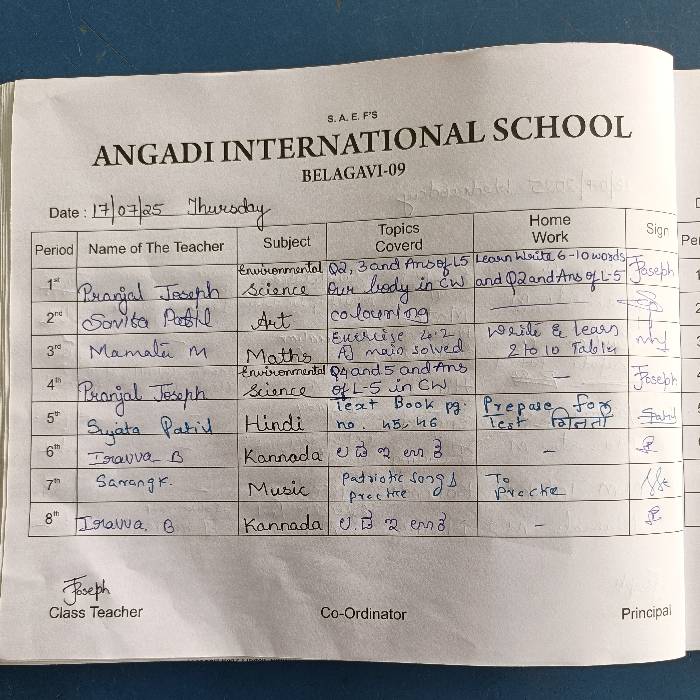 S. A. E. F'S
ANGADI INTERNATIONAL SCHOOL
BELAGAVI-09
Date : 17/07/25 Thursday
Period Name of The Teacher Subject Topics Coverd Home Work Sign
1st Pranjal Joseph Environmental Science Q2, 3 and Ans of L5 Our body in CW Learn Write 6-10 words and Q2 and Ans of L-5 Joseph
2nd Savita Patil Art colouring
3rd Mamata M Maths Exercise 4.2 A) main solved Write & learn 2 to 10 Table
4th Pranjal Joseph Environmental Science Q4 and 5 and Ans of L-5 in CW - Joseph
5th Sujata Patil Hindi Text Book pg. no. 45, 46 Prepare for Test गिनती Patil
6th Iravva B Kannada -
7th Sarang K. Music Patriotic songs prectise To Prectise
8th Iravva. B Kannada -
Joseph
Class Teacher Co-Ordinator Principal